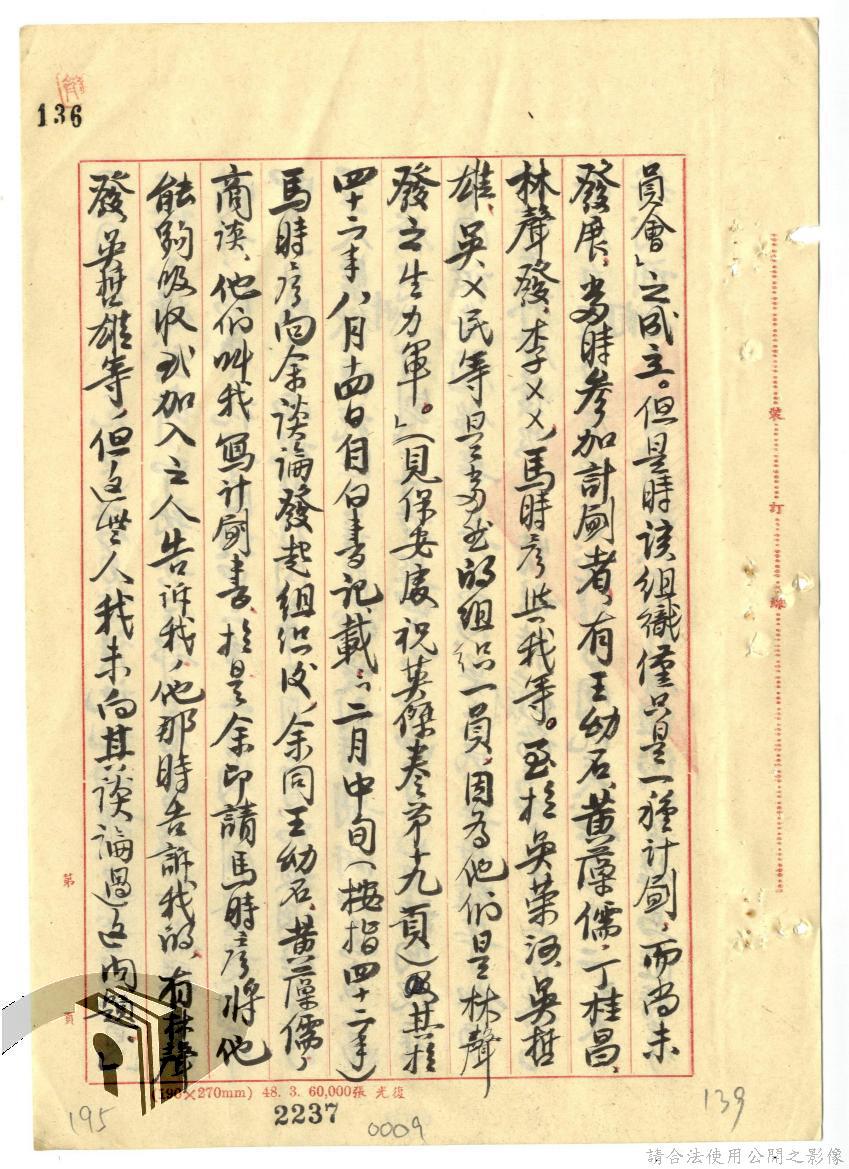 136
員會」之成立。但是時該組織僅只是一種計劃，而尚未
發展，當時參加計劃者，有王幼石、黃藻儒、丁桂昌、
林聲發、李××、馬時彥與我等。至於吳榮河、吳哲
雄、吳×民等是當然的組织一員，因為他們是林聲
發之生力軍。」（見保安處祝英傑卷第十九頁）又其於
四十二年八月十四日自白書記載：「二月中旬（按指四十二年）
馬時彥向余談論發起組织後，余同王幼石、黃藻儒，
商谈，他們叫我寫计劃書，於是余即請馬時彥將他
能夠吸收或加入之人告訴我，他那時告訴我的，有林聲
發、吳哲雄等，但这些人我未向其談論過这问题、」
裝
訂
線
第
頁
(190×270mm) 48. 3. 60,000張 光復
2237
195
0009
139
請合法使用公開之影像